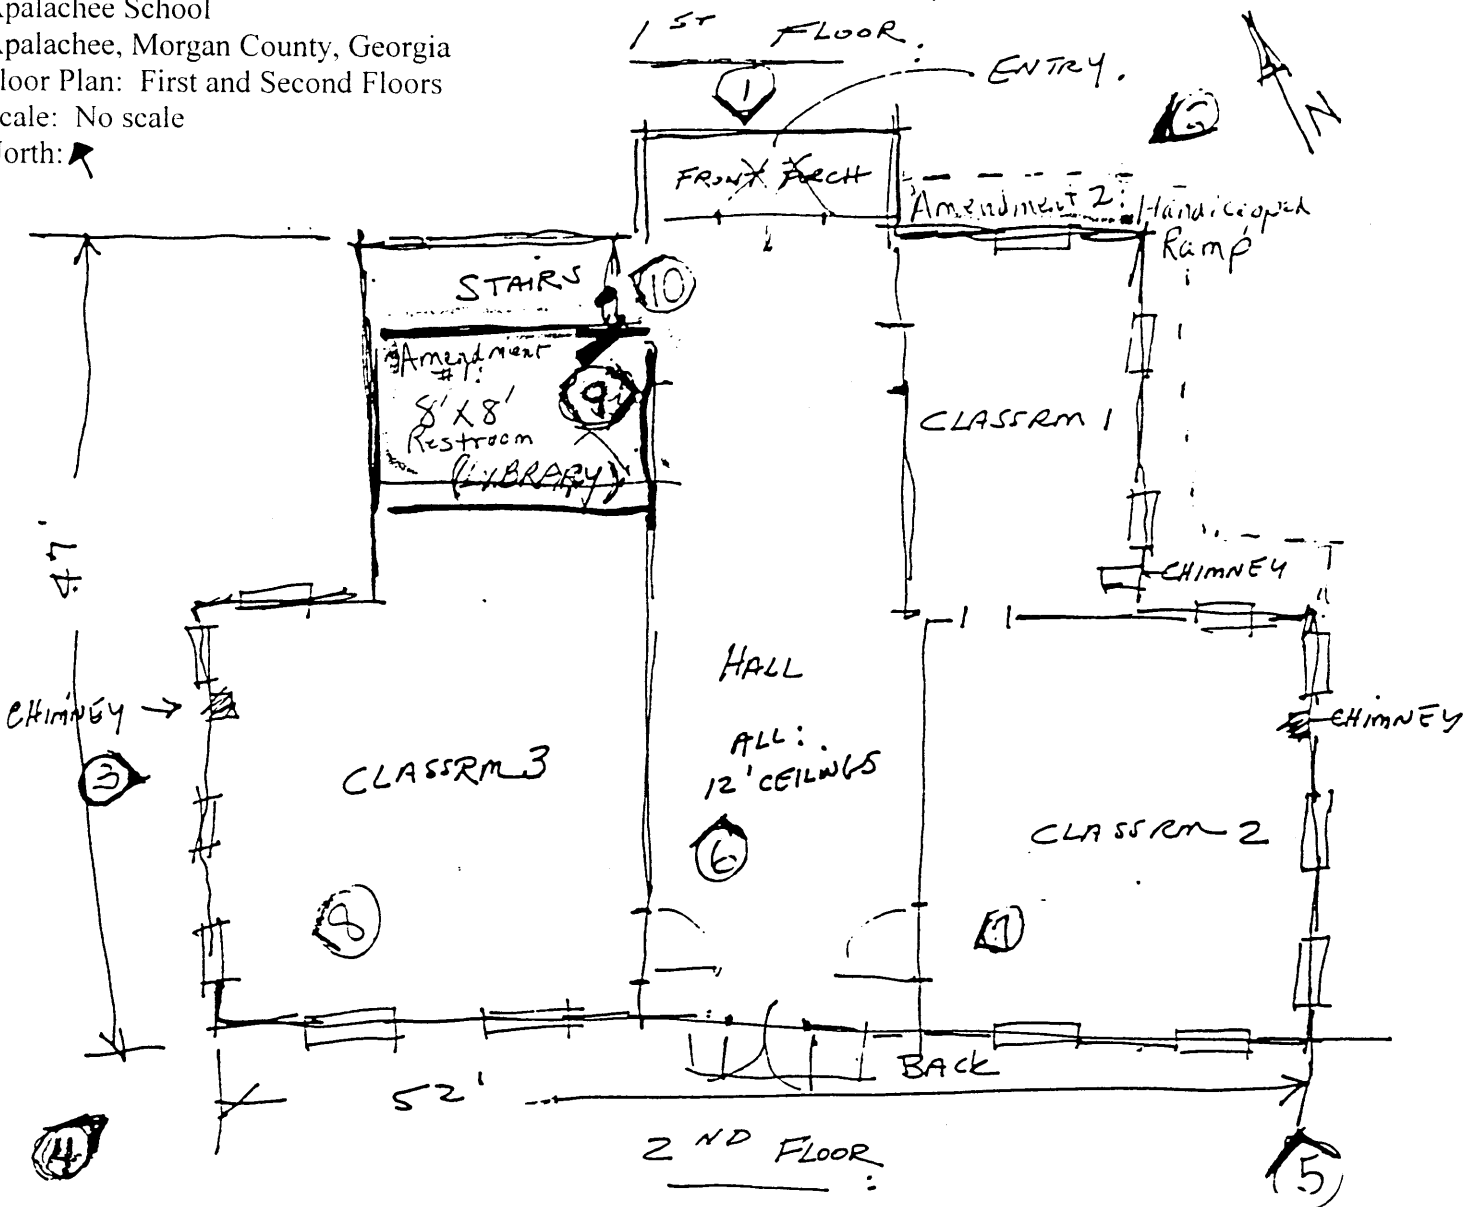 palachee School
palachee, Morgan County, Georgia
loor Plan: First and Second Floors
cale: No scale
orth:
1ST FLOOR:
ENTRY.
1
2
N
FRONT PORCH
Amendment 2: Handicapped
Ramp
STAIRS
10
Amendment
#1:
8' X 8'
Restroom
(LIBRARY)
9
CLASSRM 1
47'
CHIMNEY
HALL
ALL:
12' CEILINGS
CHIMNEY
CHIMNEY
3
CLASSRM 3
CLASSRM 2
6
8
7
BACK
52'
4
2ND FLOOR:
5